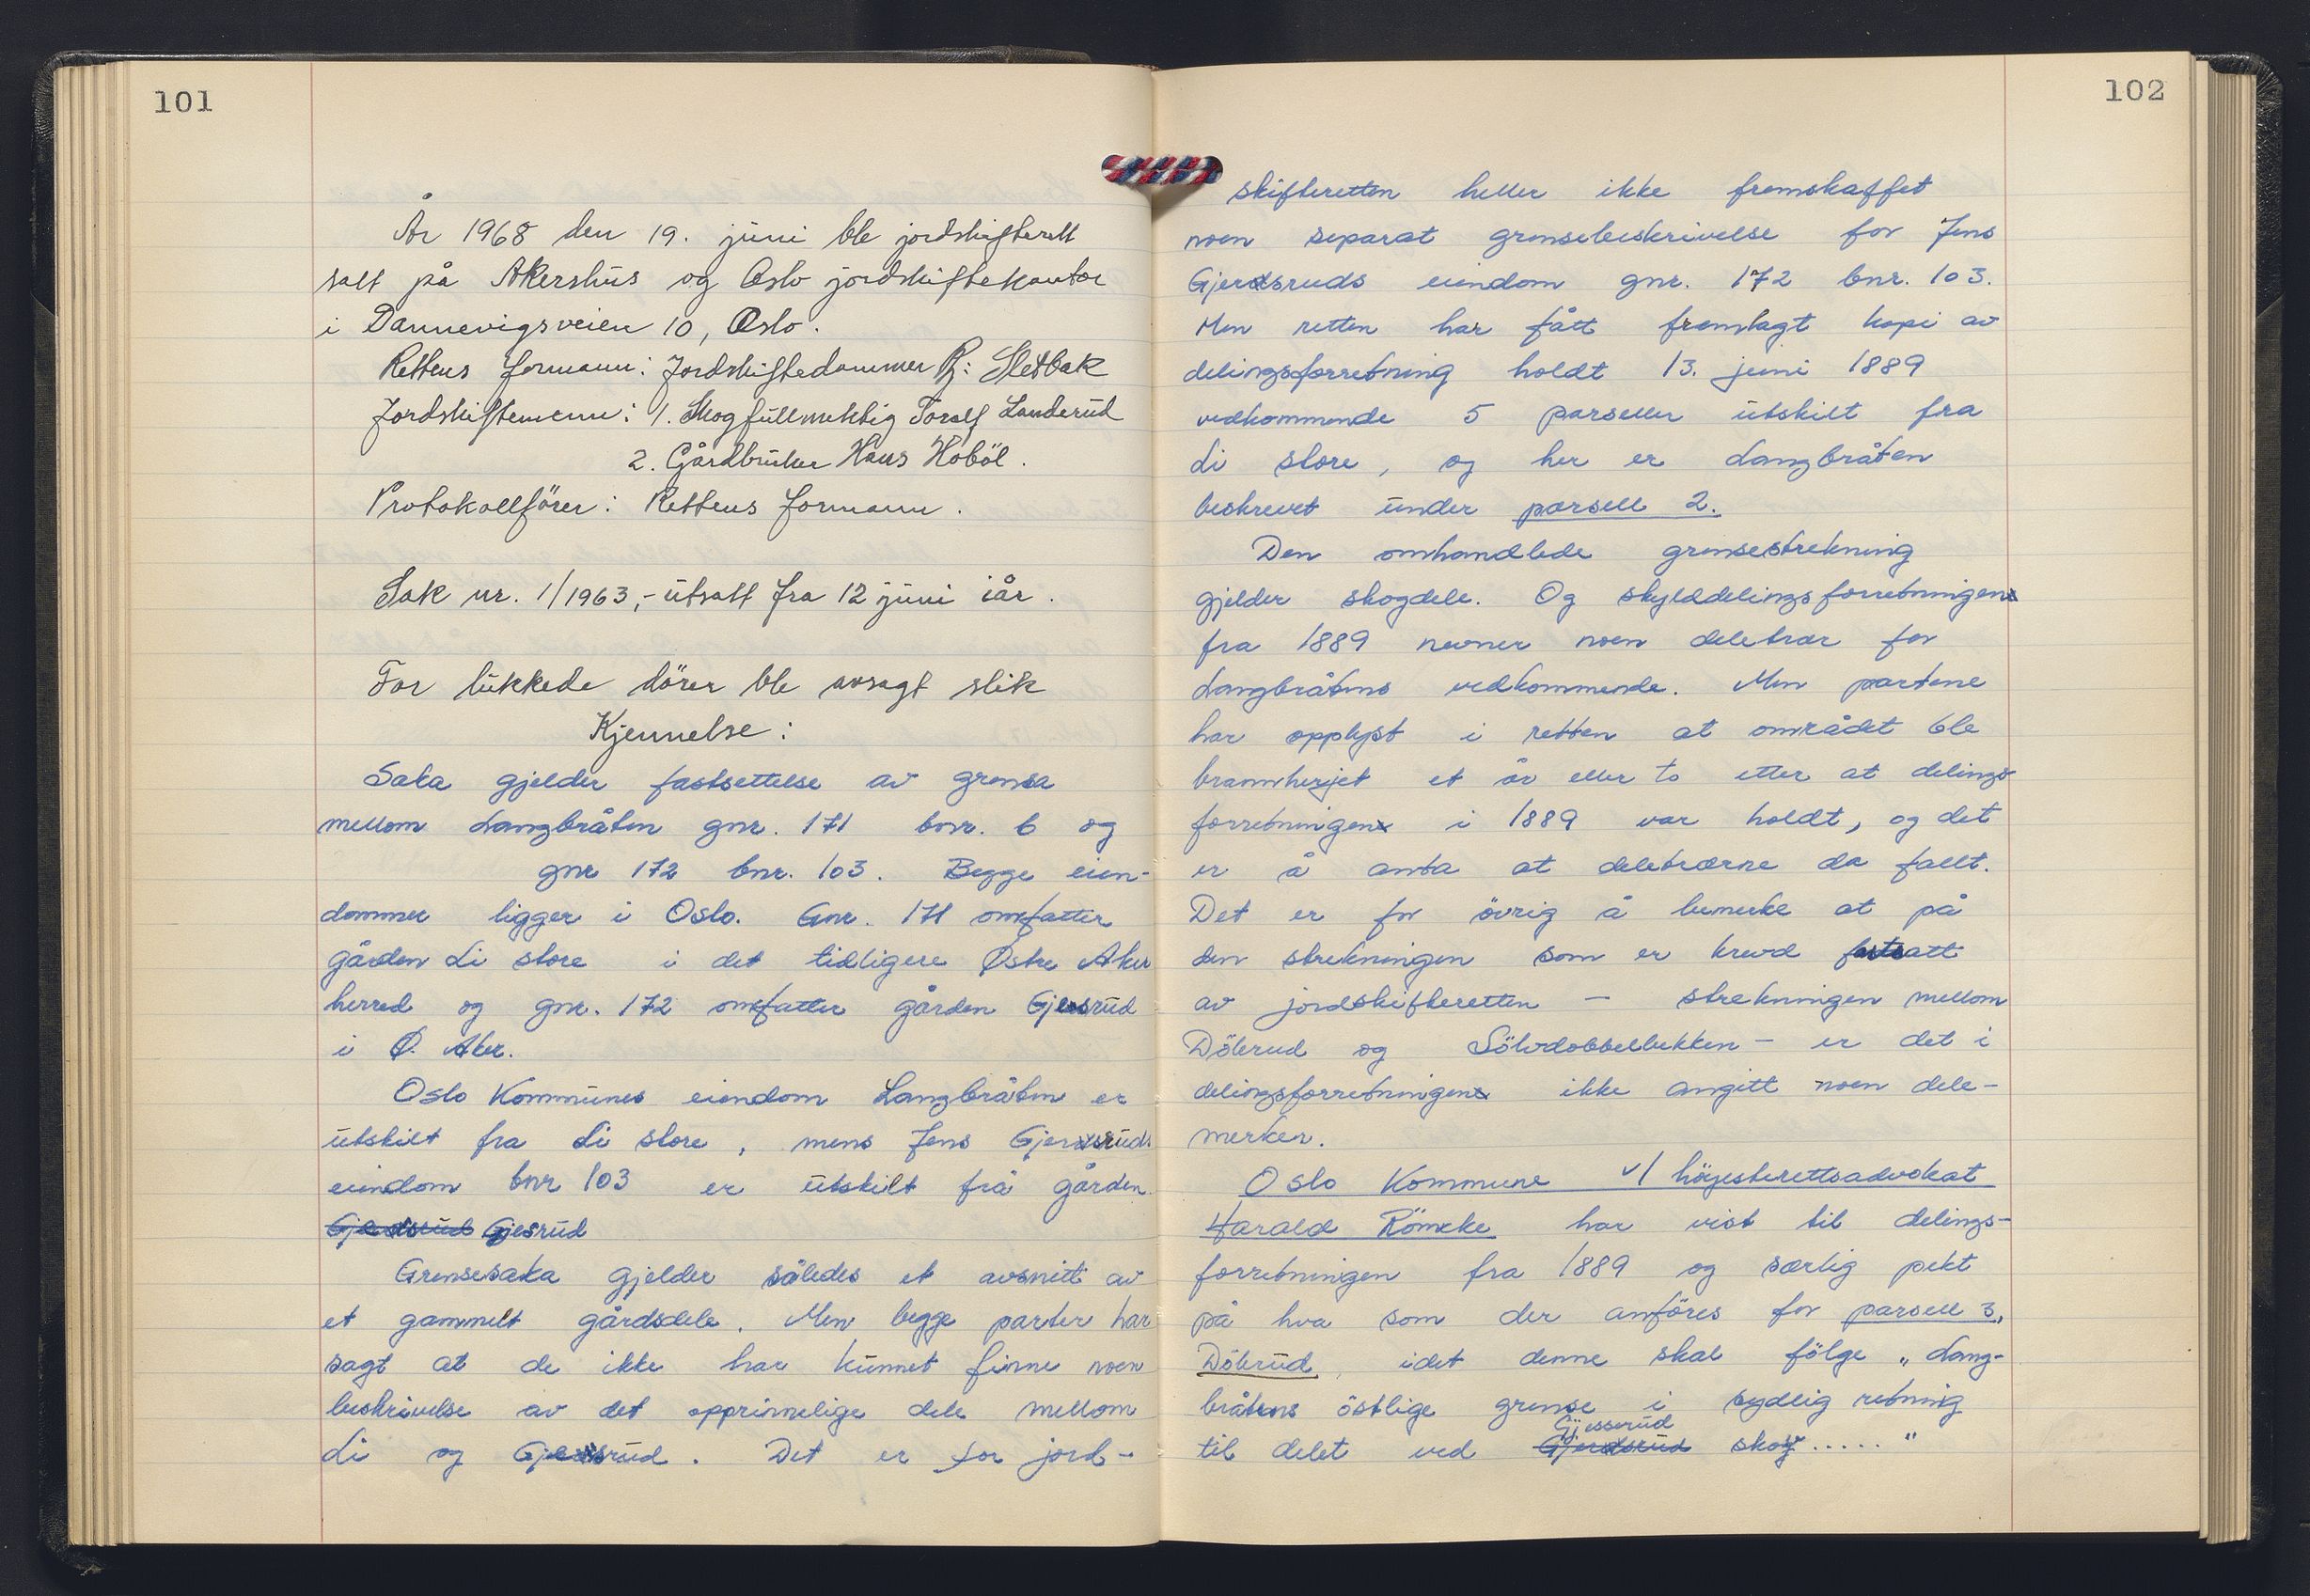 101
År 1968 den 19. juni ble jordskifterett
satt på Akershus og Oslo jordskiftekontor
i Dannevigsveien 10, Oslo.
Rettens formann: Jordskiftedommer R: Sletbak
Jordskiftemenn: 1. Skogfullmektig Toralf Landerud
2. Gårdbruker Hans Hobøl.
Protokollfører: Rettens formann.
Sak nr. 1/1963,- utsatt fra 12 juni iår.
For lukkede dører ble avsagt slik
Kjennelse:
Saka gjelder fastsettelse av grensa
mellom Langbråten gnr. 171 bnr. 6 og
gnr 172 bnr. 103. Begge eien-
dommer ligger i Oslo. Gnr. 171 omfatter
gården Li store i det tidligere Østre Aker
herred og gnr. 172 omfatter gården Gjersrud
i Ø. Aker.
Oslo Kommunes eiendom Langbråten er
utskilt fra Li store, mens Jens Gjersruds
eiendom bnr 103 er utskilt frå gården
Gjesrud
Grensesaka gjelder således et avsnitt av
et gammelt gårdsdele. Men begge parter har
sagt at de ikke har kunnet finne noen
beskrivelse av det opprinnelige dele mellom
Li og Gjersrud. Det er for jord-
102
skifteretten heller ikke fremskaffet
noen separat grensebeskrivelse for Jens
Gjerdsruds eiendom gnr. 172 bnr. 103.
Men retten har fått fremlagt kopi av
delingsforretning holdt 13. juni 1889
vedkommende 5 parseller utskilt fra
Li store, og her er Langbråten
beskrevet under parsell 2.
Den omhandlede grensestrekning
gjelder skogdele. Og skylddelingsforretningen
fra 1889 nevner noen deletrær for
Langbråtens vedkommende. Men partene
har opplyst i retten at området ble
brannherjet et år eller to etter at delings-
forretningen i 1889 var holdt, og det
er å anta at deletrærne da fallt.
Det er for øvrig å bemerke at på
den strekningen som er krevd fastsatt
av jordskifteretten – strekningen mellom
Dölerud og Sölvdobbelbekken – er det i
delingsforretningen ikke angitt noen dele-
merker.
Oslo Kommune v/ höyesterettsadvokat
Harald Römcke har vist til delings-
forretningen fra 1889 og særlig pekt
på hva som der anföres for parsell 3,
Dölerud, idet denne skal fölge „Lang-
bråtens östlige grense i sydlig retning
til delet ved Gjesserud skog....."